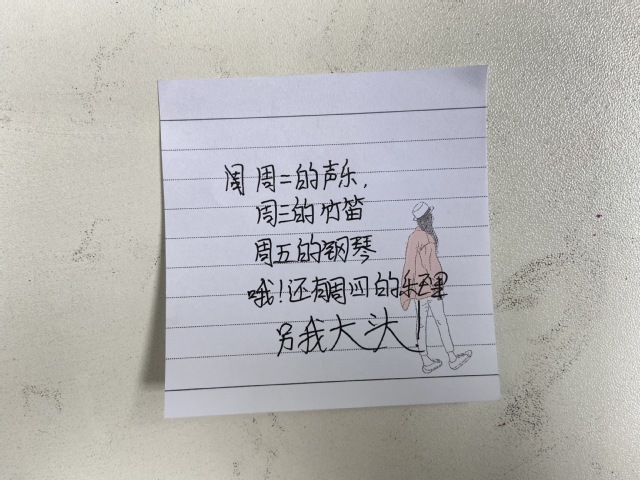 周 周二的声乐,
周三的竹笛
周五的钢琴
哦!还有周四的乐理
另我大头